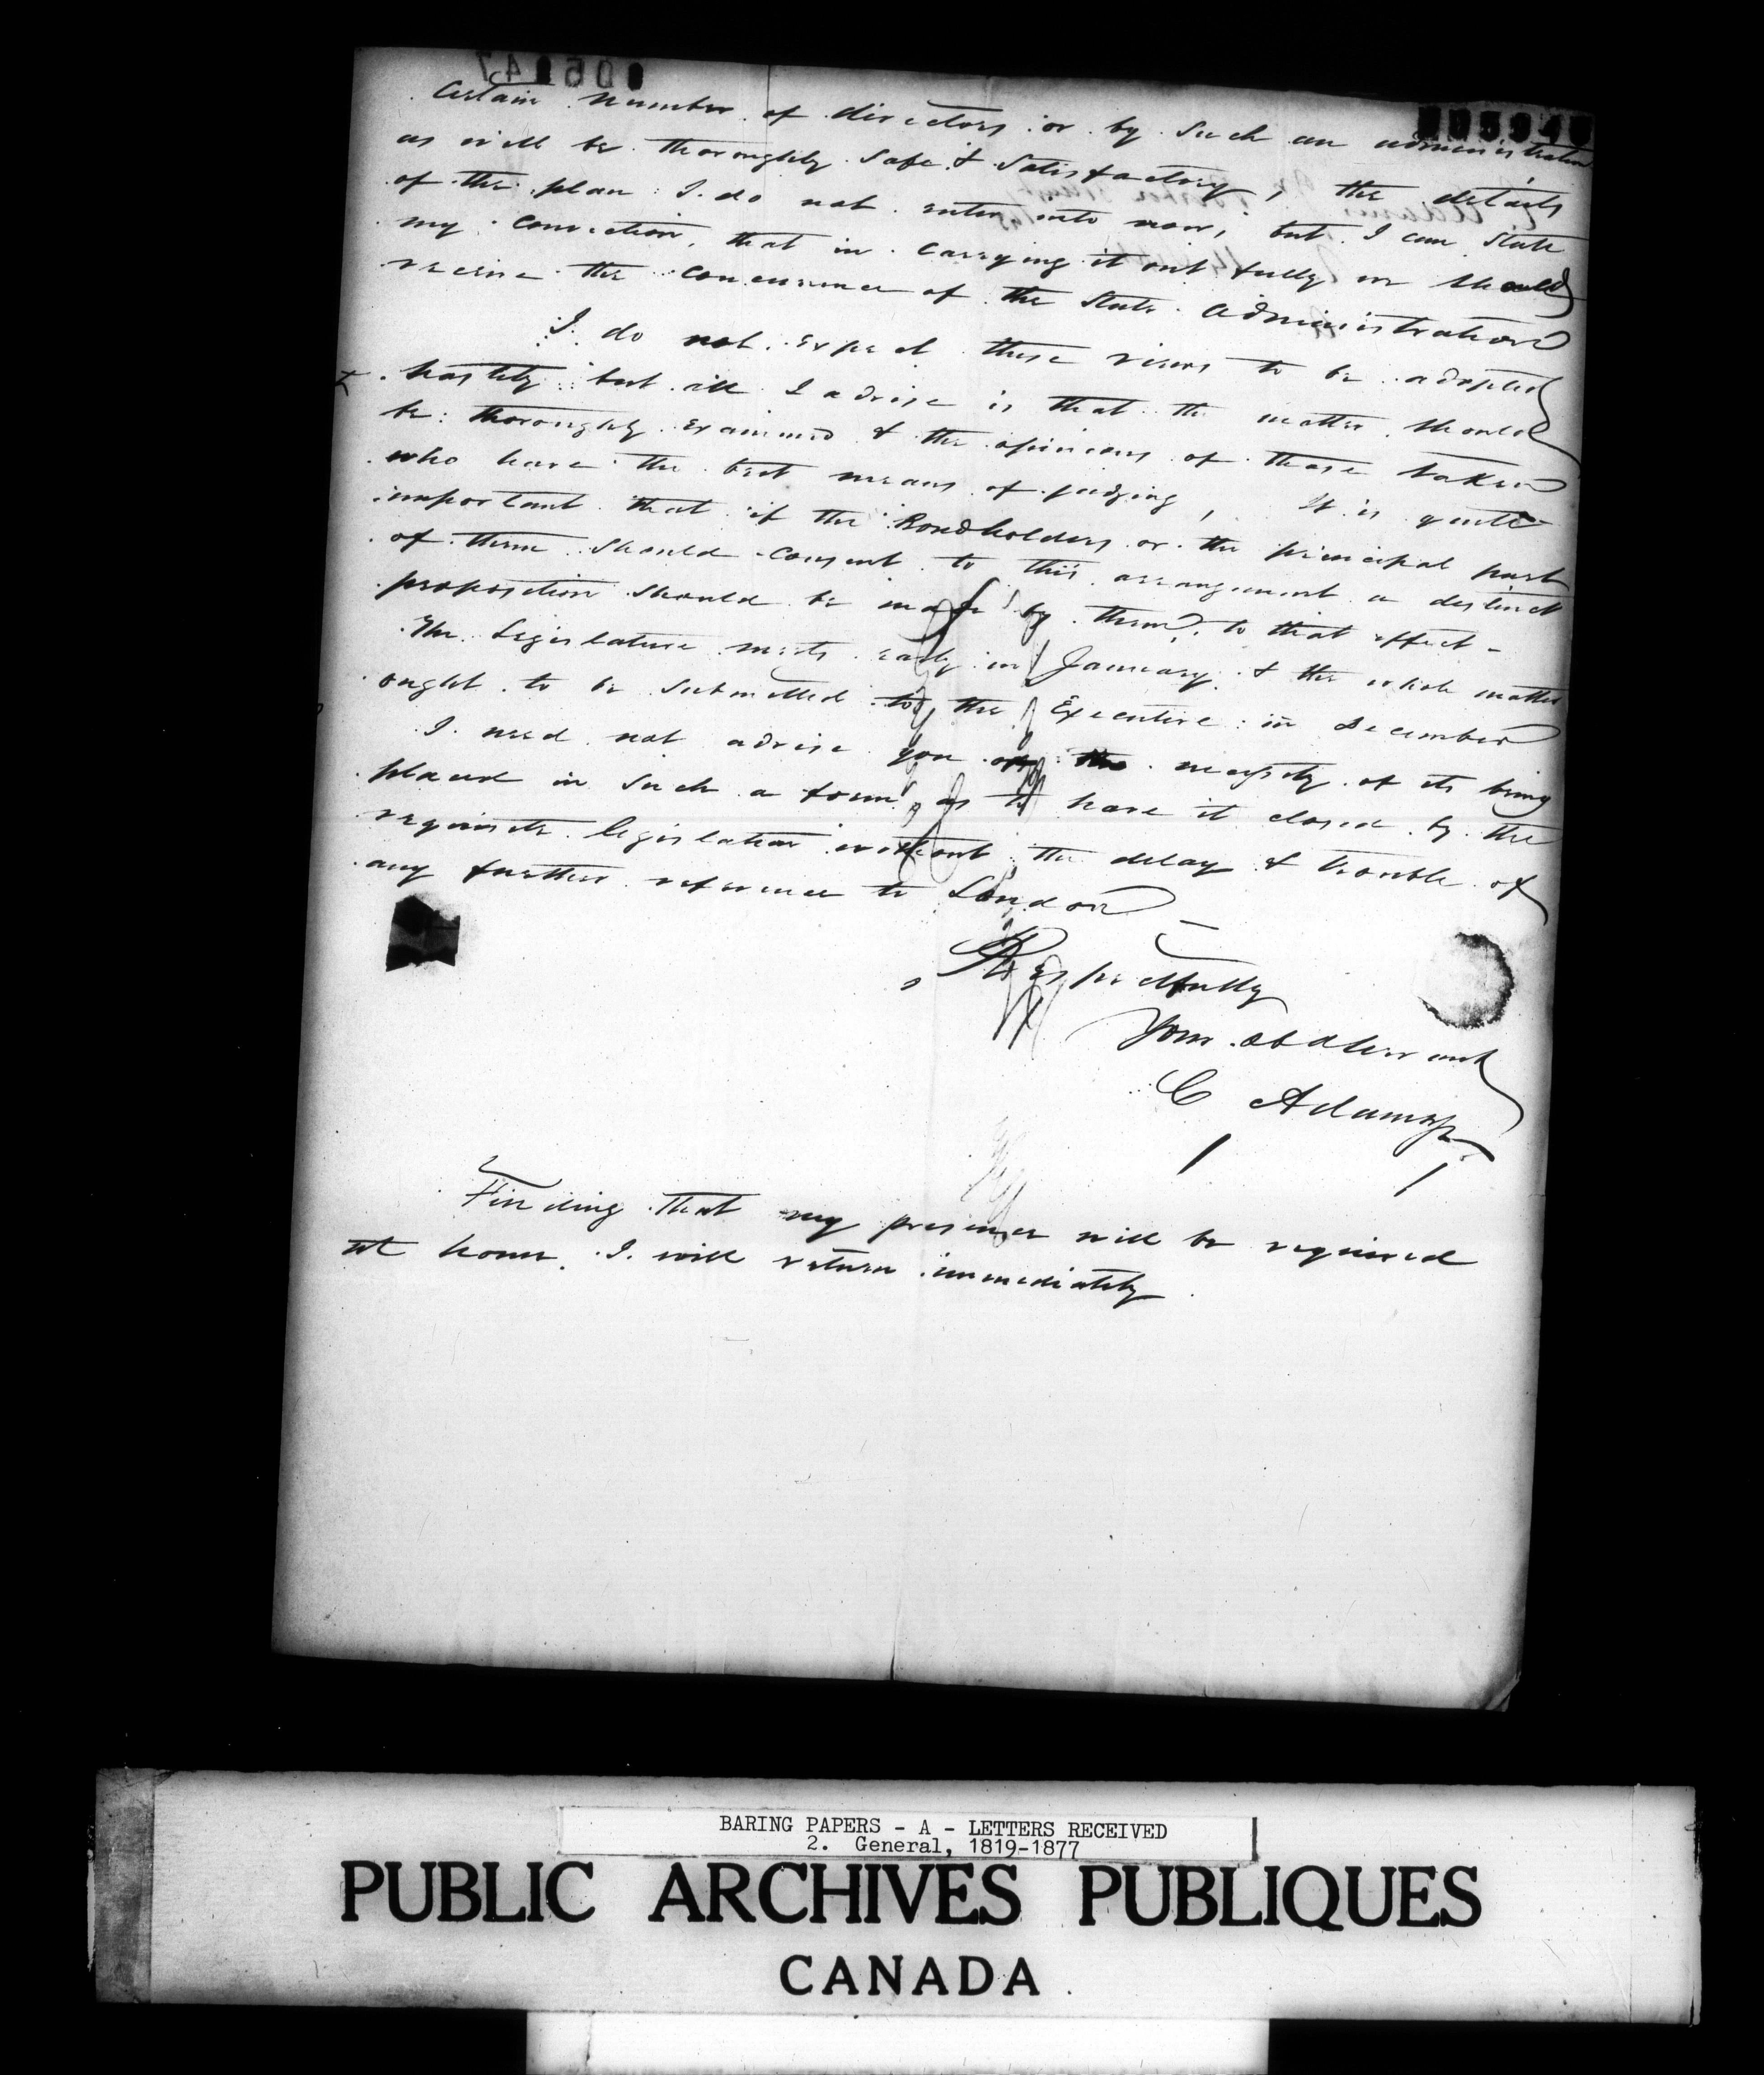 certain number of directors or by such an administration
as will be thoroughly safe & satisfactory, the details
of the plan I do not enter into now, but I can state
my conviction, that in carrying it out fully we should
receive the concurrence of the State administration
I do not expect these views to be adopted
hastily but all I advise is that the matter should
be thoroughly examined & the opinions of those taken
who have the best means of judging, It is quite
important that if the Bondholders or the principal part
of them should consent to this arrangement a distinct
proposition should be made by them to that effect -
The Legislature meets early in January & the whole matter
ought to be submitted to the Executive in December
I need not advise you necessity of its being
placed in such a form as to have it closed by the
requisite legislation without the delay & trouble of
any further reference to London -
Respectfully
Your obd servant
C Adams Jr
Finding that my presence will be required
at home I will return immediately.
BARING PAPERS - A - LETTERS RECEIVED
2. General, 1819-1877
PUBLIC ARCHIVES PUBLIQUES
CANADA